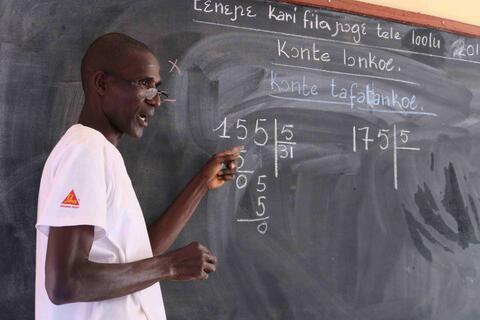 tenepe kari fila joge tele loolu 201
Konte lonkoe.
Konte tafatankoe.
155 5
5 31
05
5
0
175 5
Sika